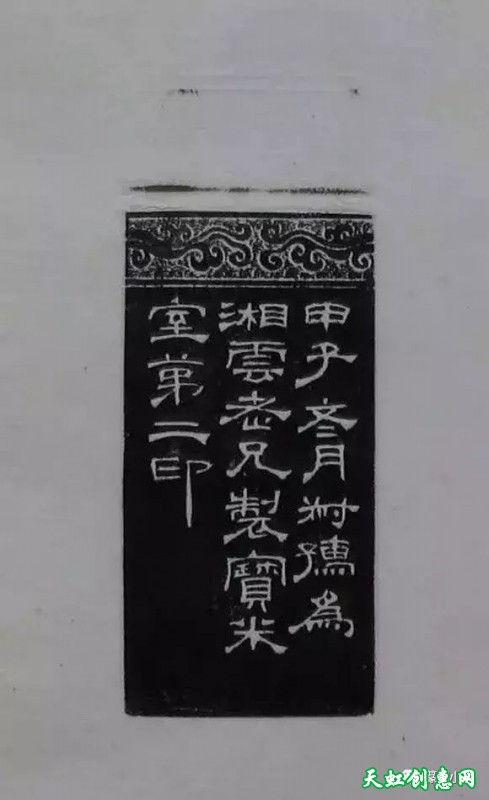 甲子冬月叔孺為
湘雲老兄製寶米
室第二印
天虹创意网